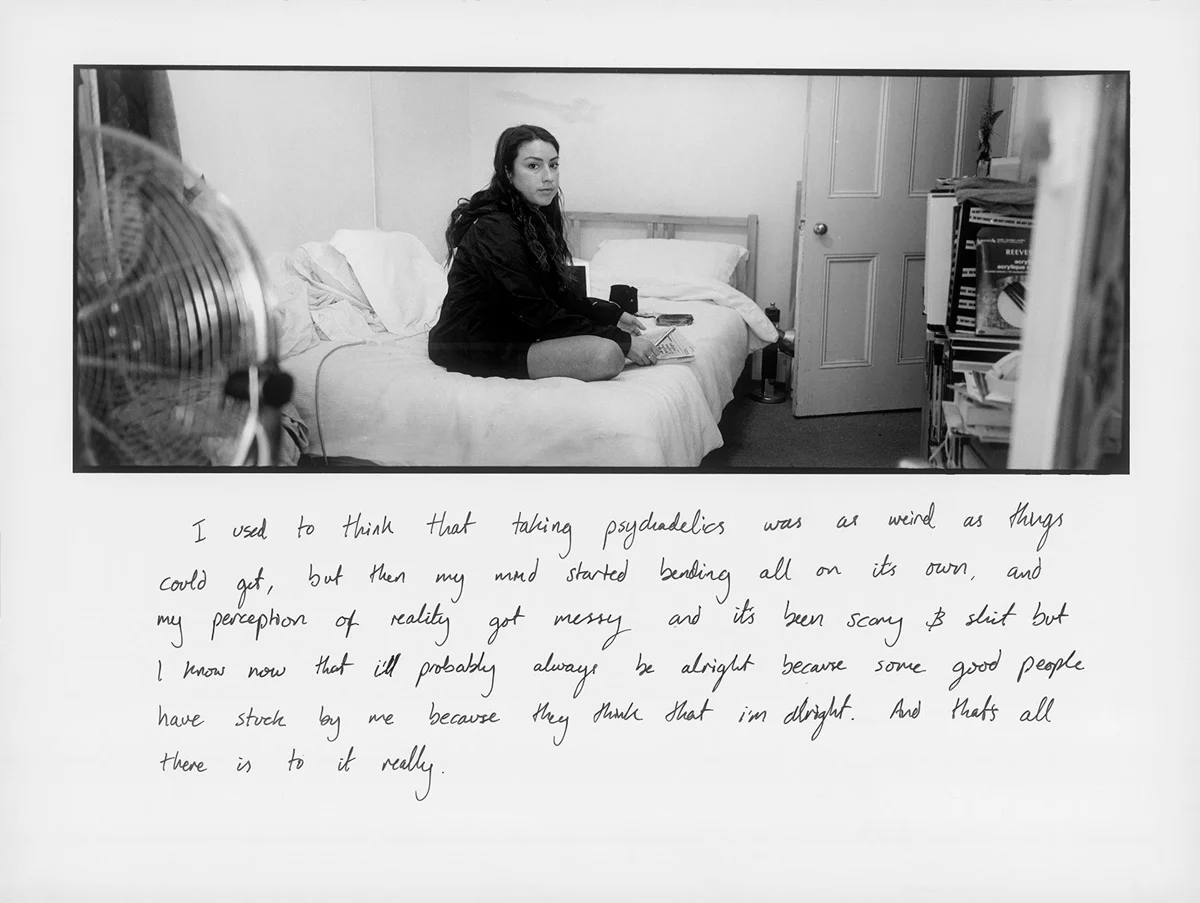 REEVES
I used to think that taking psychadelics was as weird as things
could get, but then my mind started bending all on it's own, and
my perception of reality got messy and it's been scary & shit but
I know now that i'll probably always be alright because some good people
have stuck by me because they think that i'm alright. And that's all
there is to it really.